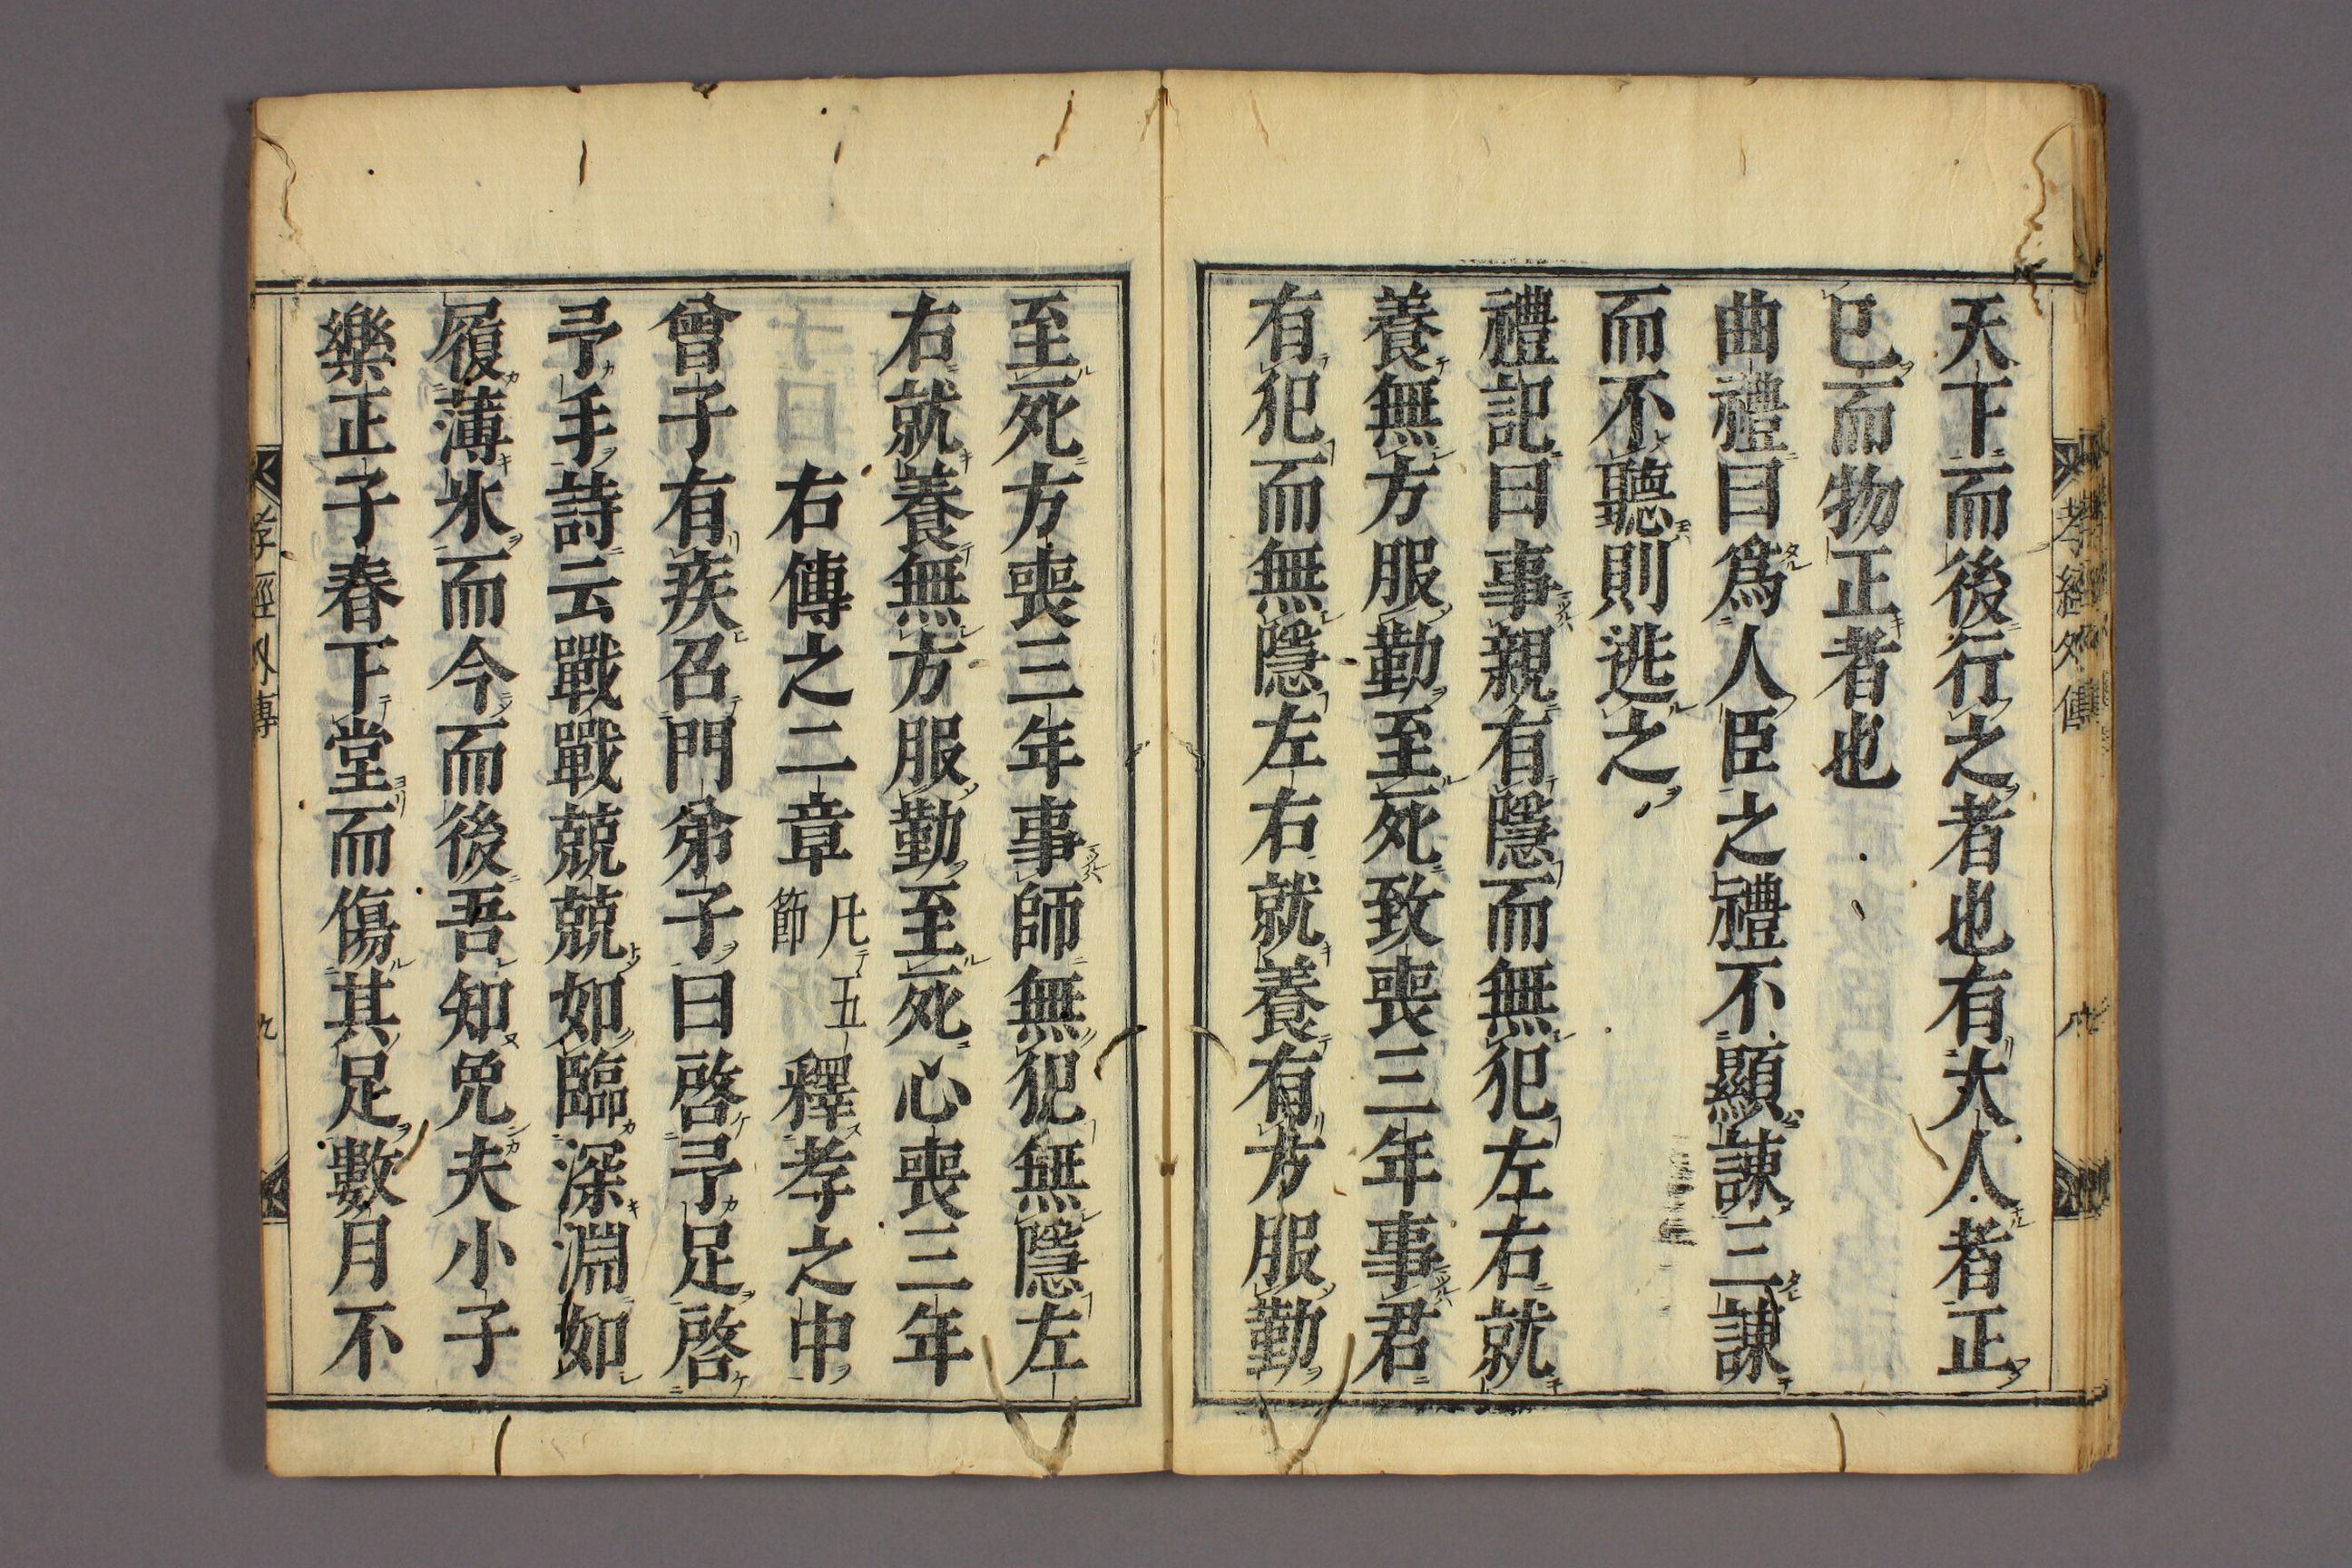 天下而後行之者也有大人者正
己而物正者也
曲禮曰爲人臣之禮不顯諫三諫
而不聽則逃之
禮記曰事親有隱而無犯左右就
養無方服勤至死致喪三年事君
有犯而無隱左右就養有方服勤
至死方喪三年事師無犯無隱左
右就養無方服勤至死心喪三年
右傳之二章凡五節釋孝之中
曾子有疾召門弟子曰啓予足啓
予手詩云戰戰兢兢如臨深淵如
履薄氷而今而後吾知免夫小子
樂正子春下堂而傷其足數月不
孝經外傳
九